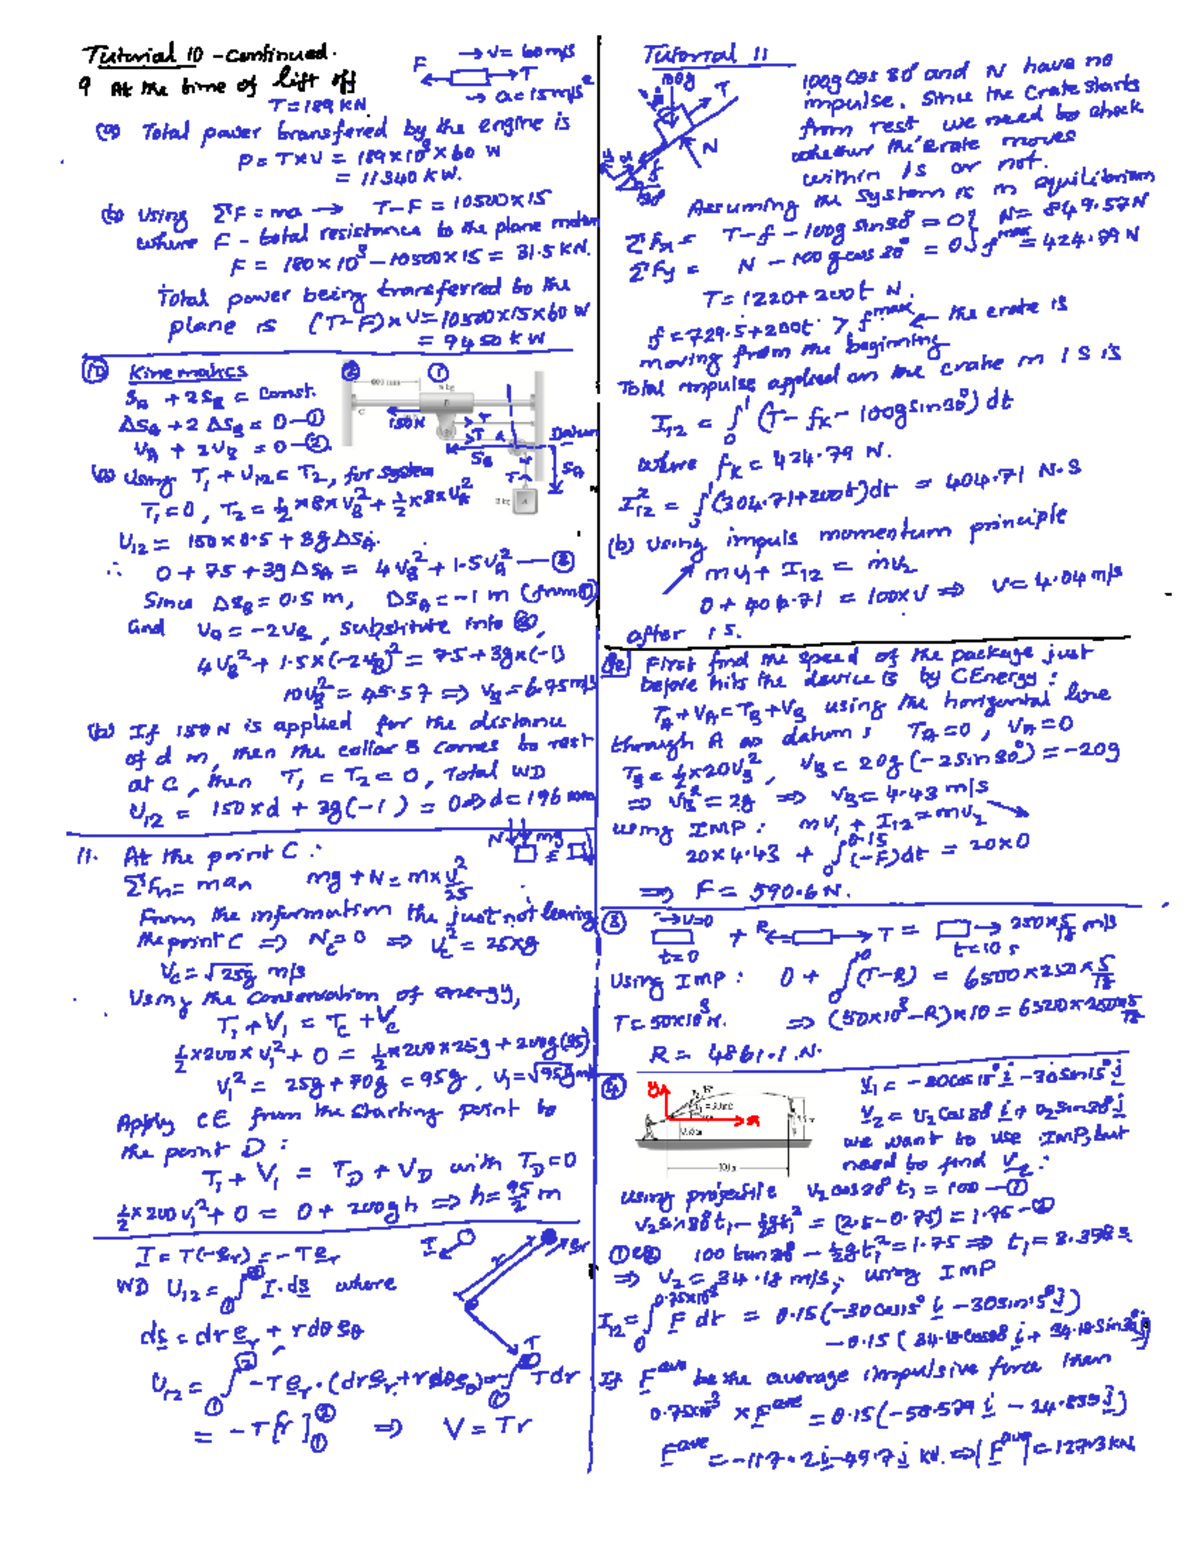 Tutorial 10 - continued.
9 At the time of lift off
T = 189 KN
F → V = 60 m/s
T
→ a = 15 m/s²
(a) Total power transfered by the engine is
P = T×V = 189×10³×60 W
= 11340 KW.
(b) Using ΣF = ma → T - F = 10500×15
where F - total resistance to the plane motion
F = 180×10³ - 10500×15 = 31.5 KN.
Total power being transferred to the
plane is (T-F)×V = 10500×15×60 W
= 9450 KW
10 Kinematics
S_A + 2S_B = Const.
ΔS_A + 2ΔS_B = 0 — ①
V_A + 2V_B = 0 — ②
② ①
150N
T
S_B
S_A
Datum
(a) Using T₁ + U₁₂ = T₂, for system
T₁ = 0, T₂ = ½×8×V_B² + ½×3×V_A²
U₁₂ = 150×0.5 + 3gΔS_A.
∴ 0 + 75 + 3gΔS_A = 4V_B² + 1.5V_A² — ③
Since ΔS_B = 0.5 m, ΔS_A = -1 m (from ①)
and V_A = -2V_B, substitute into ③,
4V_B² + 1.5×(-2V_B)² = 75 + 3g×(-1)
10V_B² = 45.57 ⇒ V_B = 6.75 m/s
(b) If 150 N is applied for the distance
of d m, then the collar B comes to rest
at C, then T₁ = T₂ = 0, Total WD
U₁₂ = 150×d + 3g(-1) = 0 ⇒ d = 196 mm
11. At the point C :
N mg
ΣF_n = ma_n mg + N = m×V²/25
From the information the just not leaving
the point C ⇒ N_C = 0 ⇒ V_C² = 25×g
V_C = √25g m/s
Using the Conservation of energy,
T₁ + V₁ = T_C + V_C
½×200×V₁² + 0 = ½×200×25g + 200g(35)
V₁² = 25g + 70g = 95g, V₁ = √95g m/s
Apply CE from the starting point to
the point D :
T₁ + V₁ = T_D + V_D with T_D = 0
½×200V₁² + 0 = 0 + 200gh ⇒ h = 95/2 m
T = T(-e_r) = -Te_r
WD U₁₂ = ∫ T.ds where
ds = dr e_r + rdθ e_θ
U₁₂ = ∫ -Te_r.(dr e_r + rdθ e_θ) = -∫ Tdr
= -T[r] ⇒ V = Tr
Tutorial 11
100g T
N
f
30°
100g Cos 30° and N have no
impulse. Since the Crate starts
from rest we need to check
whether the crate moves
within 1s or not.
Assuming the system is in equilibrium
ΣF_x = T - f - 100g sin30° = 0 } N = 849.57N
ΣF_y = N - 100g cos 30° = 0 } f^max = 424.79 N
T = 1220 + 200t N.
f = 729.5 + 200t > f^max ← the crate is
moving from the beginning
Total impulse applied on the crate in 1S is
I₁₂ = ∫₀¹ (T - f_k - 100g sin30°) dt
where f_k = 424.79 N.
I₁₂ = ∫ (304.71 + 200t) dt = 404.71 N.S
(b) using impuls momentum principle
mv₁ + I₁₂ = mv₂
0 + 404.71 = 100×V ⇒ V = 4.04 m/s
after 1s.
Q2 First find the speed of the package just
before hits the device B by CEnergy :
T_A + V_A = T_B + V_B using the horizontal line
through A as datum : T_A = 0, V_A = 0
T_B = ½×20V_B², V_B = 20g(-2sin30°) = -20g
⇒ V_B² = 2g ⇒ V_B = 4.43 m/s
Using IMP : mv₁ + I₁₂ = mv₂
20×4.43 + ∫₀^0.15 (-F)dt = 20×0
⇒ F = 590.6 N.
③ → V=0 + R ← → T = → 250×5/18 m/s
t=0 t=10 s
Using IMP : 0 + ∫₀¹⁰ (T-R) = 6500×250×5/18
T = 50×10³ N. ⇒ (50×10³ - R)×10 = 6500×250×5/18
R = 4861.1 N.
④
y
x
V₁ = -30cos15° i - 30sin15° j
V₂ = V₂cos30° i + V₂sin30° j
we want to use IMP, but
need to find V₂ :
Using projectile V₂cos30° t₁ = 100 — ①
V₂sin30° t₁ - ½gt₁² = (2.5 - 0.75) = 1.75 — ②
①&② 100 tan30° - ½gt₁² = 1.75 ⇒ t₁ = 3.398 s
⇒ V₂ = 34.18 m/s, using IMP
I₁₂ = ∫ F dt = 0.15(-30cos15° i - 30sin15° j)
- 0.15(34.18cos30 i + 34.18sin30° j)
If F^ave be the average impulsive force then
0.75×10⁻³ × F^ave = 0.15(-58.579 i - 24.855 j)
F^ave = -117.2 i - 49.7 j kN. ⇒ |F^ave| = 127.3 KN.